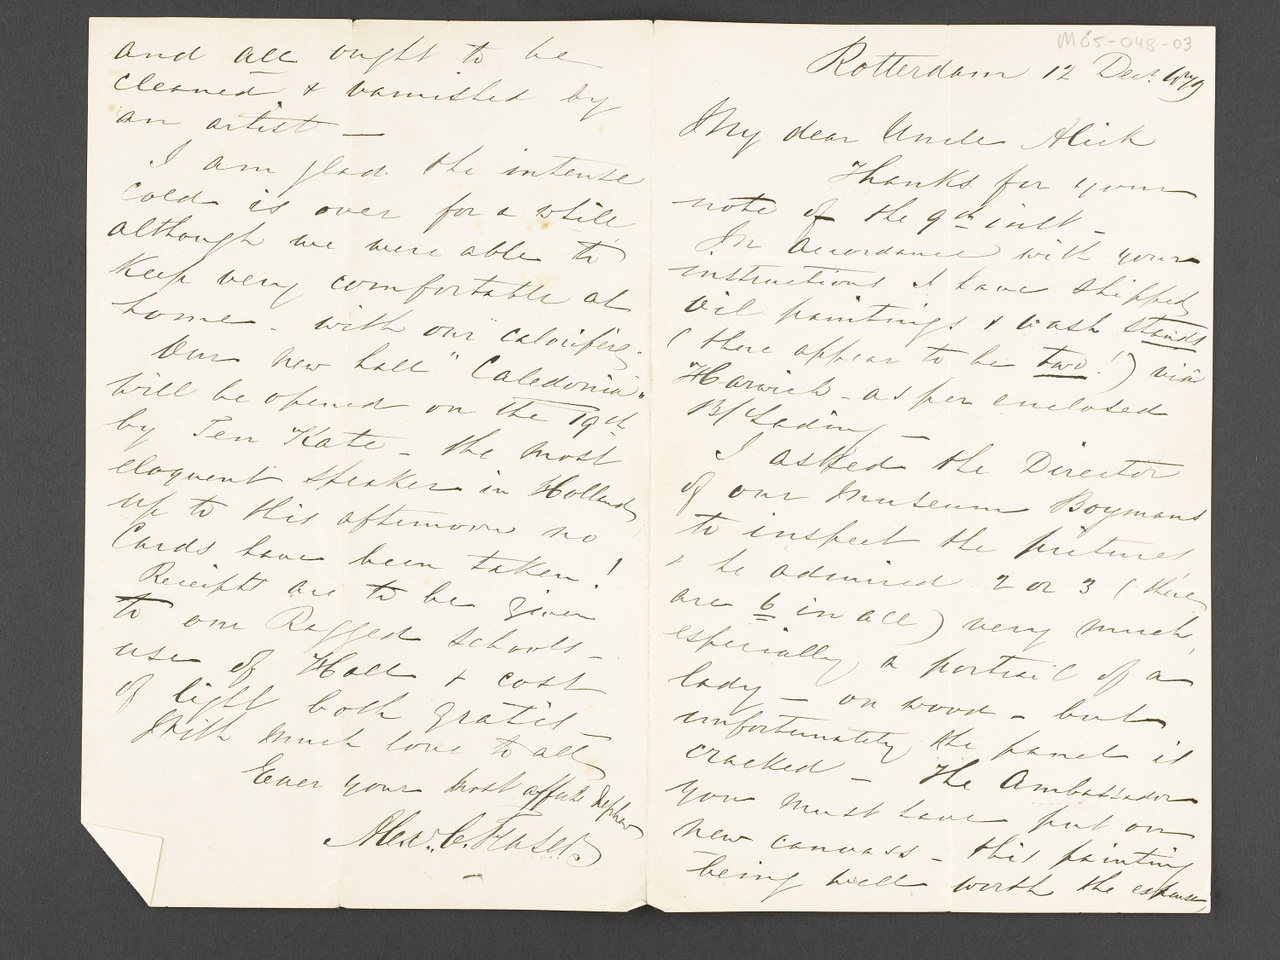 M65-048-03
Rotterdam 12 Decr. 1879
My dear Uncle Alick
Thanks for your
note of the 9th inst -
In accordance with your
instructions I have shipped
oil paintings & wash stands
(there appear to be two!) via
Harwich - as per enclosed
B/Lading -
I asked the Director
of our Museum Boymans
to inspect the pictures
& he admired 2 or 3 (there
are 6 in all) very much,
especially a portrait of a
lady - on wood - but
unfortunately the panel is
cracked - The Ambassador
you must have put on
new canvass - this painting
being well worth the expense,
and all ought to be
cleaned & varnished by
an artist -
I am glad the intense
cold is over for a while
although we were able to
keep very comfortable at
home - with our "calorifere"
Our new hall "Caledonia"
will be opened on the 19th
by Ten Kate - the most
eloquent speaker in Holland,
up to this afternoon no
Cards have been taken!
Receipts are to be given
to our Ragged Schools -
use of Hall & cost
of light both gratis -
With much love to all
Ever your most affte Nephew
Alexr. C. Fraser